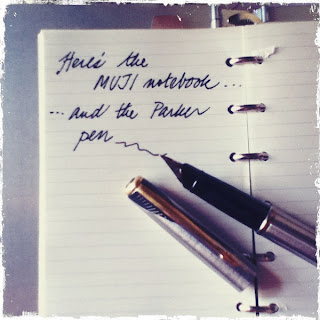 Here's the
MUJI notebook...
... and the Parker
pen